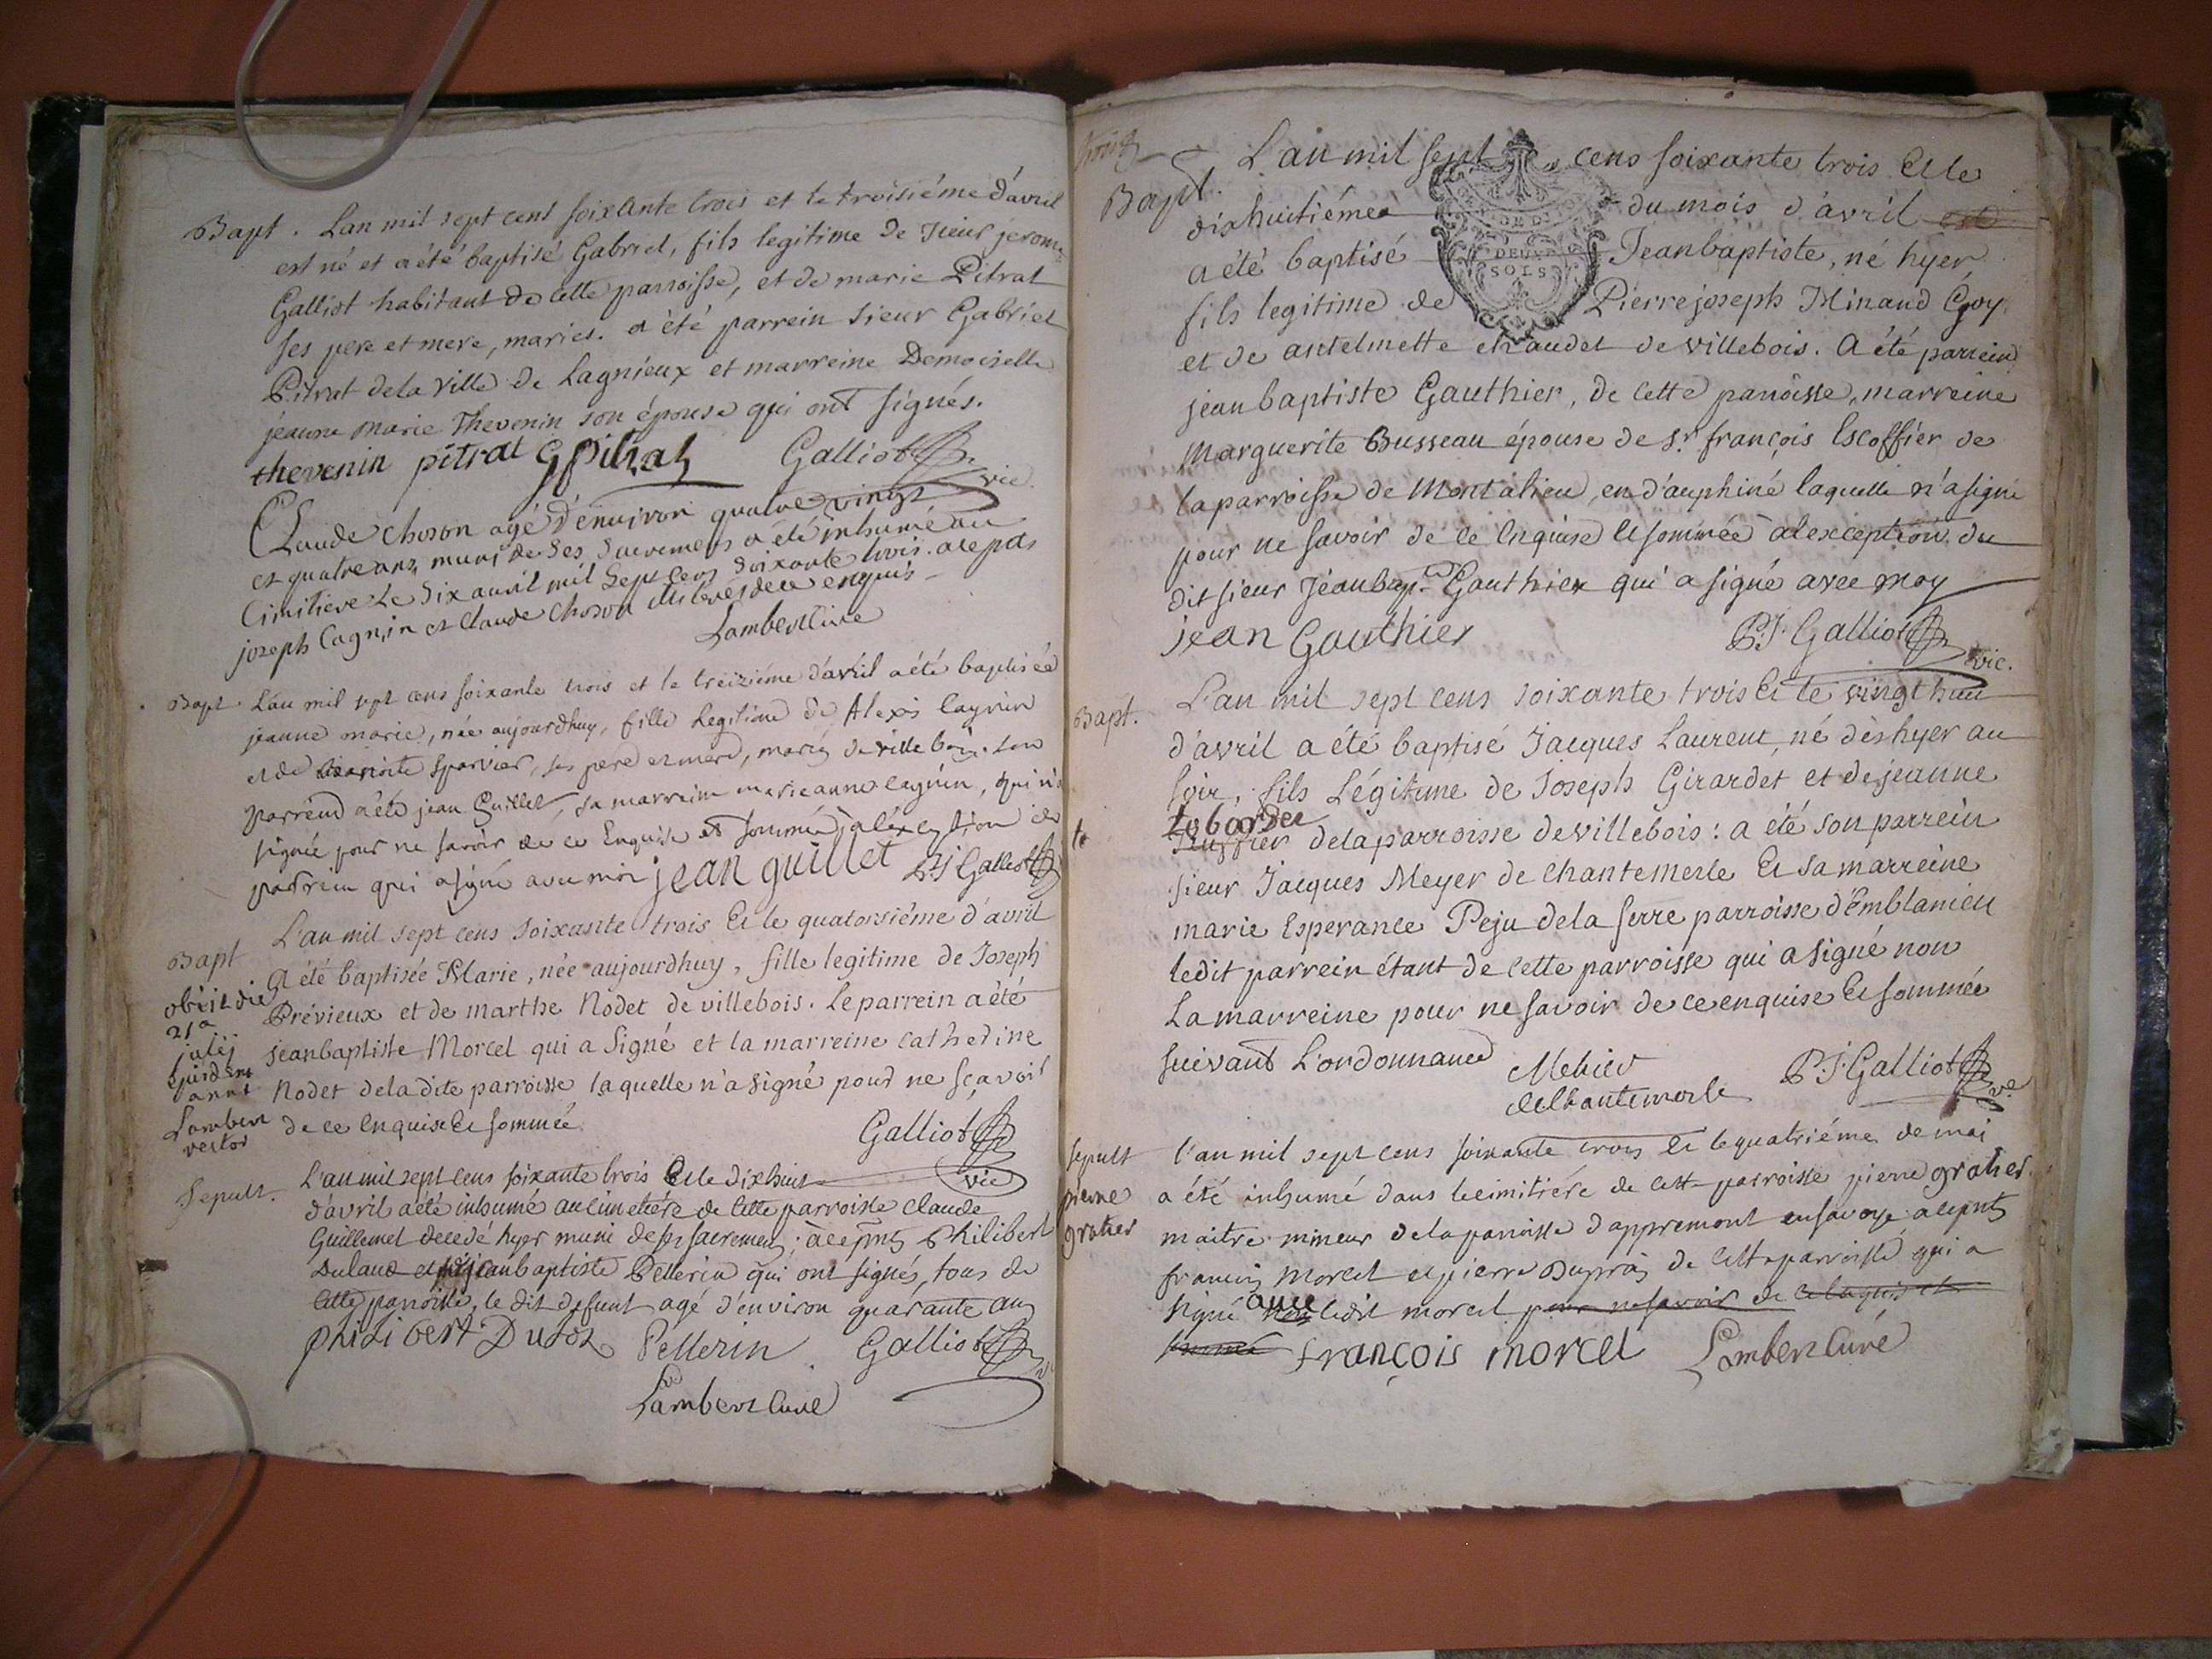 Bapt. Lan mil sept cent soixante trois et le troisiéme d'avril
est né et a été baptisé Gabriel, fils legitime de sieur jerome
Galliot habitant de cette parroisse, et de marie Pitrat
ses pere et mere, mariés. a été parrein sieur Gabriel
Pitrat de la ville de Lagnieux et marreine Demoiselle
jeanne marie Thevenin son épouse qui ont signés.
thevenin pitrat GPitrat Galliot vic.
Claude choson agé d'enuiron quatre vingt
et quatre ans, muni de ses sacremens a été inhumé au
Cimitiere le six auril mil sept cens soixante trois. a ce pns
joseph Cagnin et Claude choson illiterés de ce enquis
Lambert Curé
Bapt. L'an mil sept cens soixante trois et le treiziéme d'avril a été baptisée
jeanne marie, née aujourdhuy, fille legitime de Alexis Cagnin
et de sparvier, ses pere et mere, mariés de villebois. son
parrein a été jean Guillet, sa marreine marie anne cagnin, qui n'a
signée pour ne savoir de ce Enquise et sommée, à l'exception du
parrein qui a signé avec moi jean guillet P.J Galliot
Bapt L'an mil sept cens soixante trois Et le quatorsiéme d'avril
A été baptisée Marie, née aujourdhuy, fille legitime de Joseph
obiit die Prévieux et de marthe Nodet de villebois. Le parrein a été
21a
julij jeanbaptiste Morcel qui a Signé et la marreine catherine
ejusdem
anni Nodet de la dite parroisse laquelle n'a signé pour ne sçavoir
Lambert
rector de ce Enquise Et sommée. Galliot vic
Sepult. L'an mil sept cens soixante trois Et le dixhuit
d'avril a été inhumé au cimetiére de cette parroisse claude
Guillemet decedé hyer muni de ses sacremens; à ce pnts Philibert
Dulaud et jeanbaptiste Pellerin qui ont signés, tous de
cette parroisse, le dit defunt agé d'environ quarante ans
philibert Pellerin Galliot
Lambert Curé
Bapt. L'an mil sept cens soixante trois Et le
dixhuitiéme du mois d'avril
DEUX SOLS
a été baptisé Jeanbaptiste, né hyer,
fils legitime de Pierre joseph Minaud Goy
et de antelmette chaudet de villebois. A été parrein
jeanbaptiste Gauthier, de cette parroisse, marreine
Marguerite Busseau épouse de Sr. françois Escoffier de
la parroisse de Montalieu, en d'auphiné laquelle n'a signé
pour ne savoir de ce Enquise Et sommée à l'exception du
dit sieur Jeanbapte. Gauthier qui a signé avec moy
jean Gauthier P.J. Galliot vic.
Bapt. L'an mil sept cens soixante trois Et le vingt huit
d'avril a été baptisé Jacques Laurent, né dès hyer au
soir, fils Légitime de Joseph Girardet et de jeanne
tobordee
de la parroisse de villebois : a été son parrein
sieur Jacques Meyer de Chantemerle Et sa marreine
marie Esperance Peju de la serre parroisse d'Emblanieu
ledit parrein étant de cette parroisse qui a signé non
La marreine pour ne savoir de ce enquise Et sommée
suivant L'ordonnance
deChantemerle P.J. Galliot
Sepult
pierre
gratier
l'an mil sept cens soixante trois Et le quatriéme de mai
a été inhumé dans le cimitiére de cette parroisse pierre gratier
maitre mineur de la parroisse d'appremont en savoye. a ce pnts
francois Morcel et pierre Dupras de cette parroisse qui a
signé auec ledit morcel pour ne savoir de ce enquis et
sommé françois morcel Lambert Curé